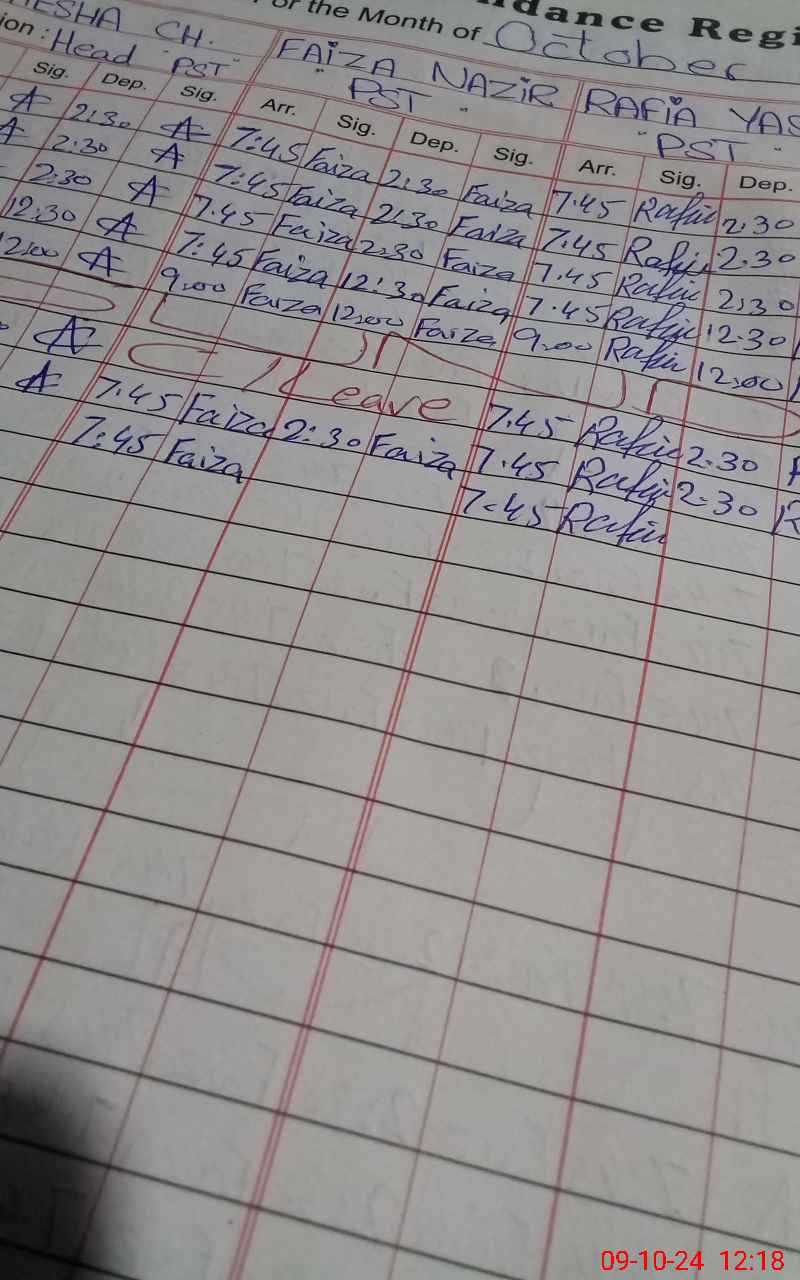 ndance Regi
or the Month of October
ESHA CH. FAIZA NAZIR RAFIA YAS
ion : Head "PST" "PST" "PST"
Sig. Dep. Sig. Arr. Sig. Dep. Sig. Arr. Sig. Dep.
A 2:30 A 7:45 Faiza 2:30 Faiza 7.45 Rafia 2.30
A 2:30 A 7:45 Faiza 2:30 Faiza 7.45 Rafia 2.30
2:30 A 7.45 Faiza 2:30 Faiza 7.45 Rafia 2:30
12:30 A 7:45 Faiza 12:30 Faiza 7.45 Rafia 12.30
12:00 A 9:00 Faiza 12:00 Faiza 9:00 Rafia 12:00
A C/Leave 7.45 Rafia 2.30
A 7.45 Faiza 2:30 Faiza 7.45 Rafia 2.30 R
7:45 Faiza 7.45 Rafia
09-10-24 12:18